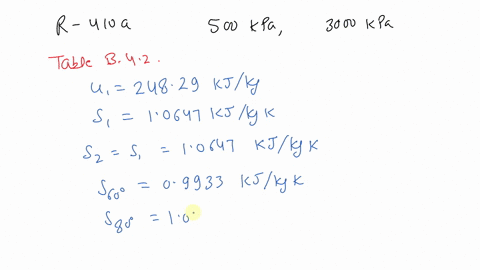 R-410a 500 kPa, 3000 kPa
Table B.4.2.
u₁ = 248.29 KJ/kg
S₁ = 1.0647 KJ/kg K
S₂ = S₁ = 1.0647 KJ/kg K
S₆₀° = 0.9933 KJ/kg K
S₈₀° = 1.0